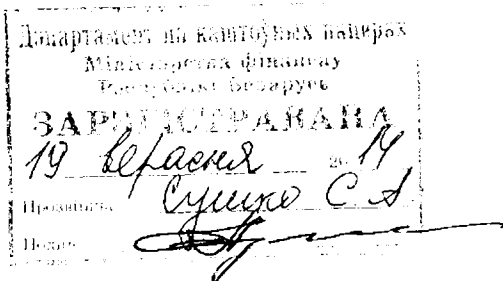 Дэпартамент па каштоўных паперах
Міністэрства фінансаў
Рэспублікі Беларусь
ЗАРЭГІСТРАВАНА
19 верасня 2014
Прозвішча Сушко С А
Подпіс